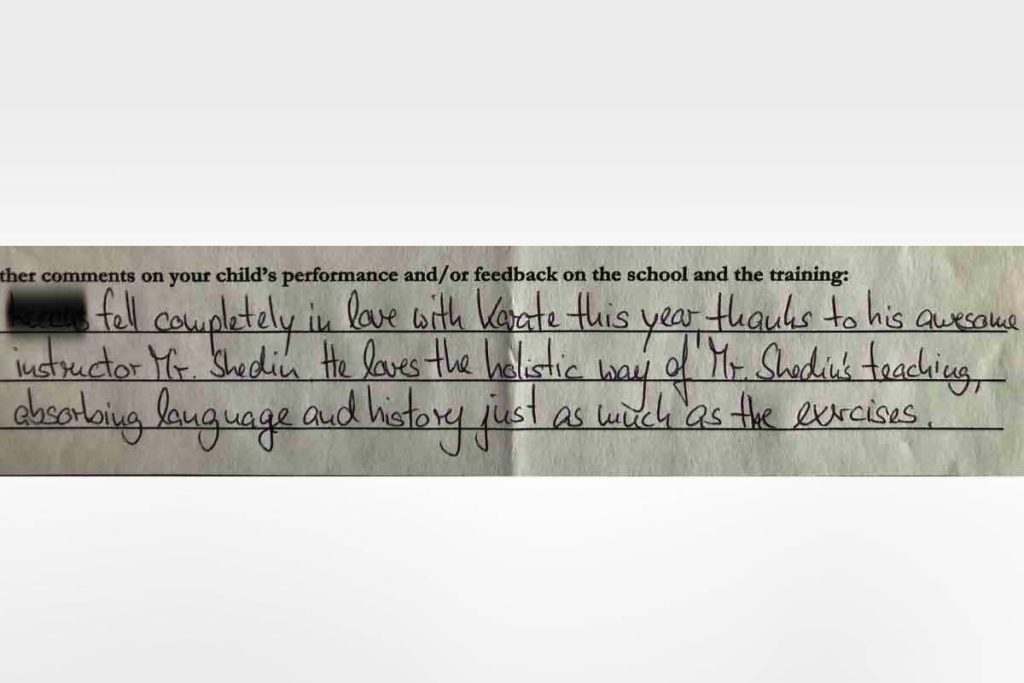 ther comments on your child's performance and/or feedback on the school and the training:
fell completely in love with Karate this year, thanks to his awesome
instructor Mr. Shedin. He loves the holistic way of Mr. Shedin's teaching,
absorbing language and history just as much as the exercises.